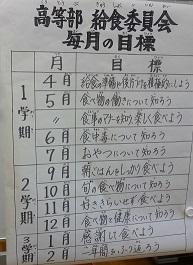 高等部 給食委員会
毎月の目標
月 目標
1学期
4月 給食の準備や後片付けを積極的にしよう
5月 食べ物の働きについて知ろう
〃 食事のマナーを知り楽しく食べよう
6月 食中毒について知ろう
7月 おやつについて知ろう
2学期
9月 朝ごはんをしっかり食べよう
10月 旬の食べ物について知ろう
11月 好ききらいせず食べよう
12月 食べ物と健康について知ろう
3学期
1月 感謝して食べよう
2月 一年間をふり返ろう